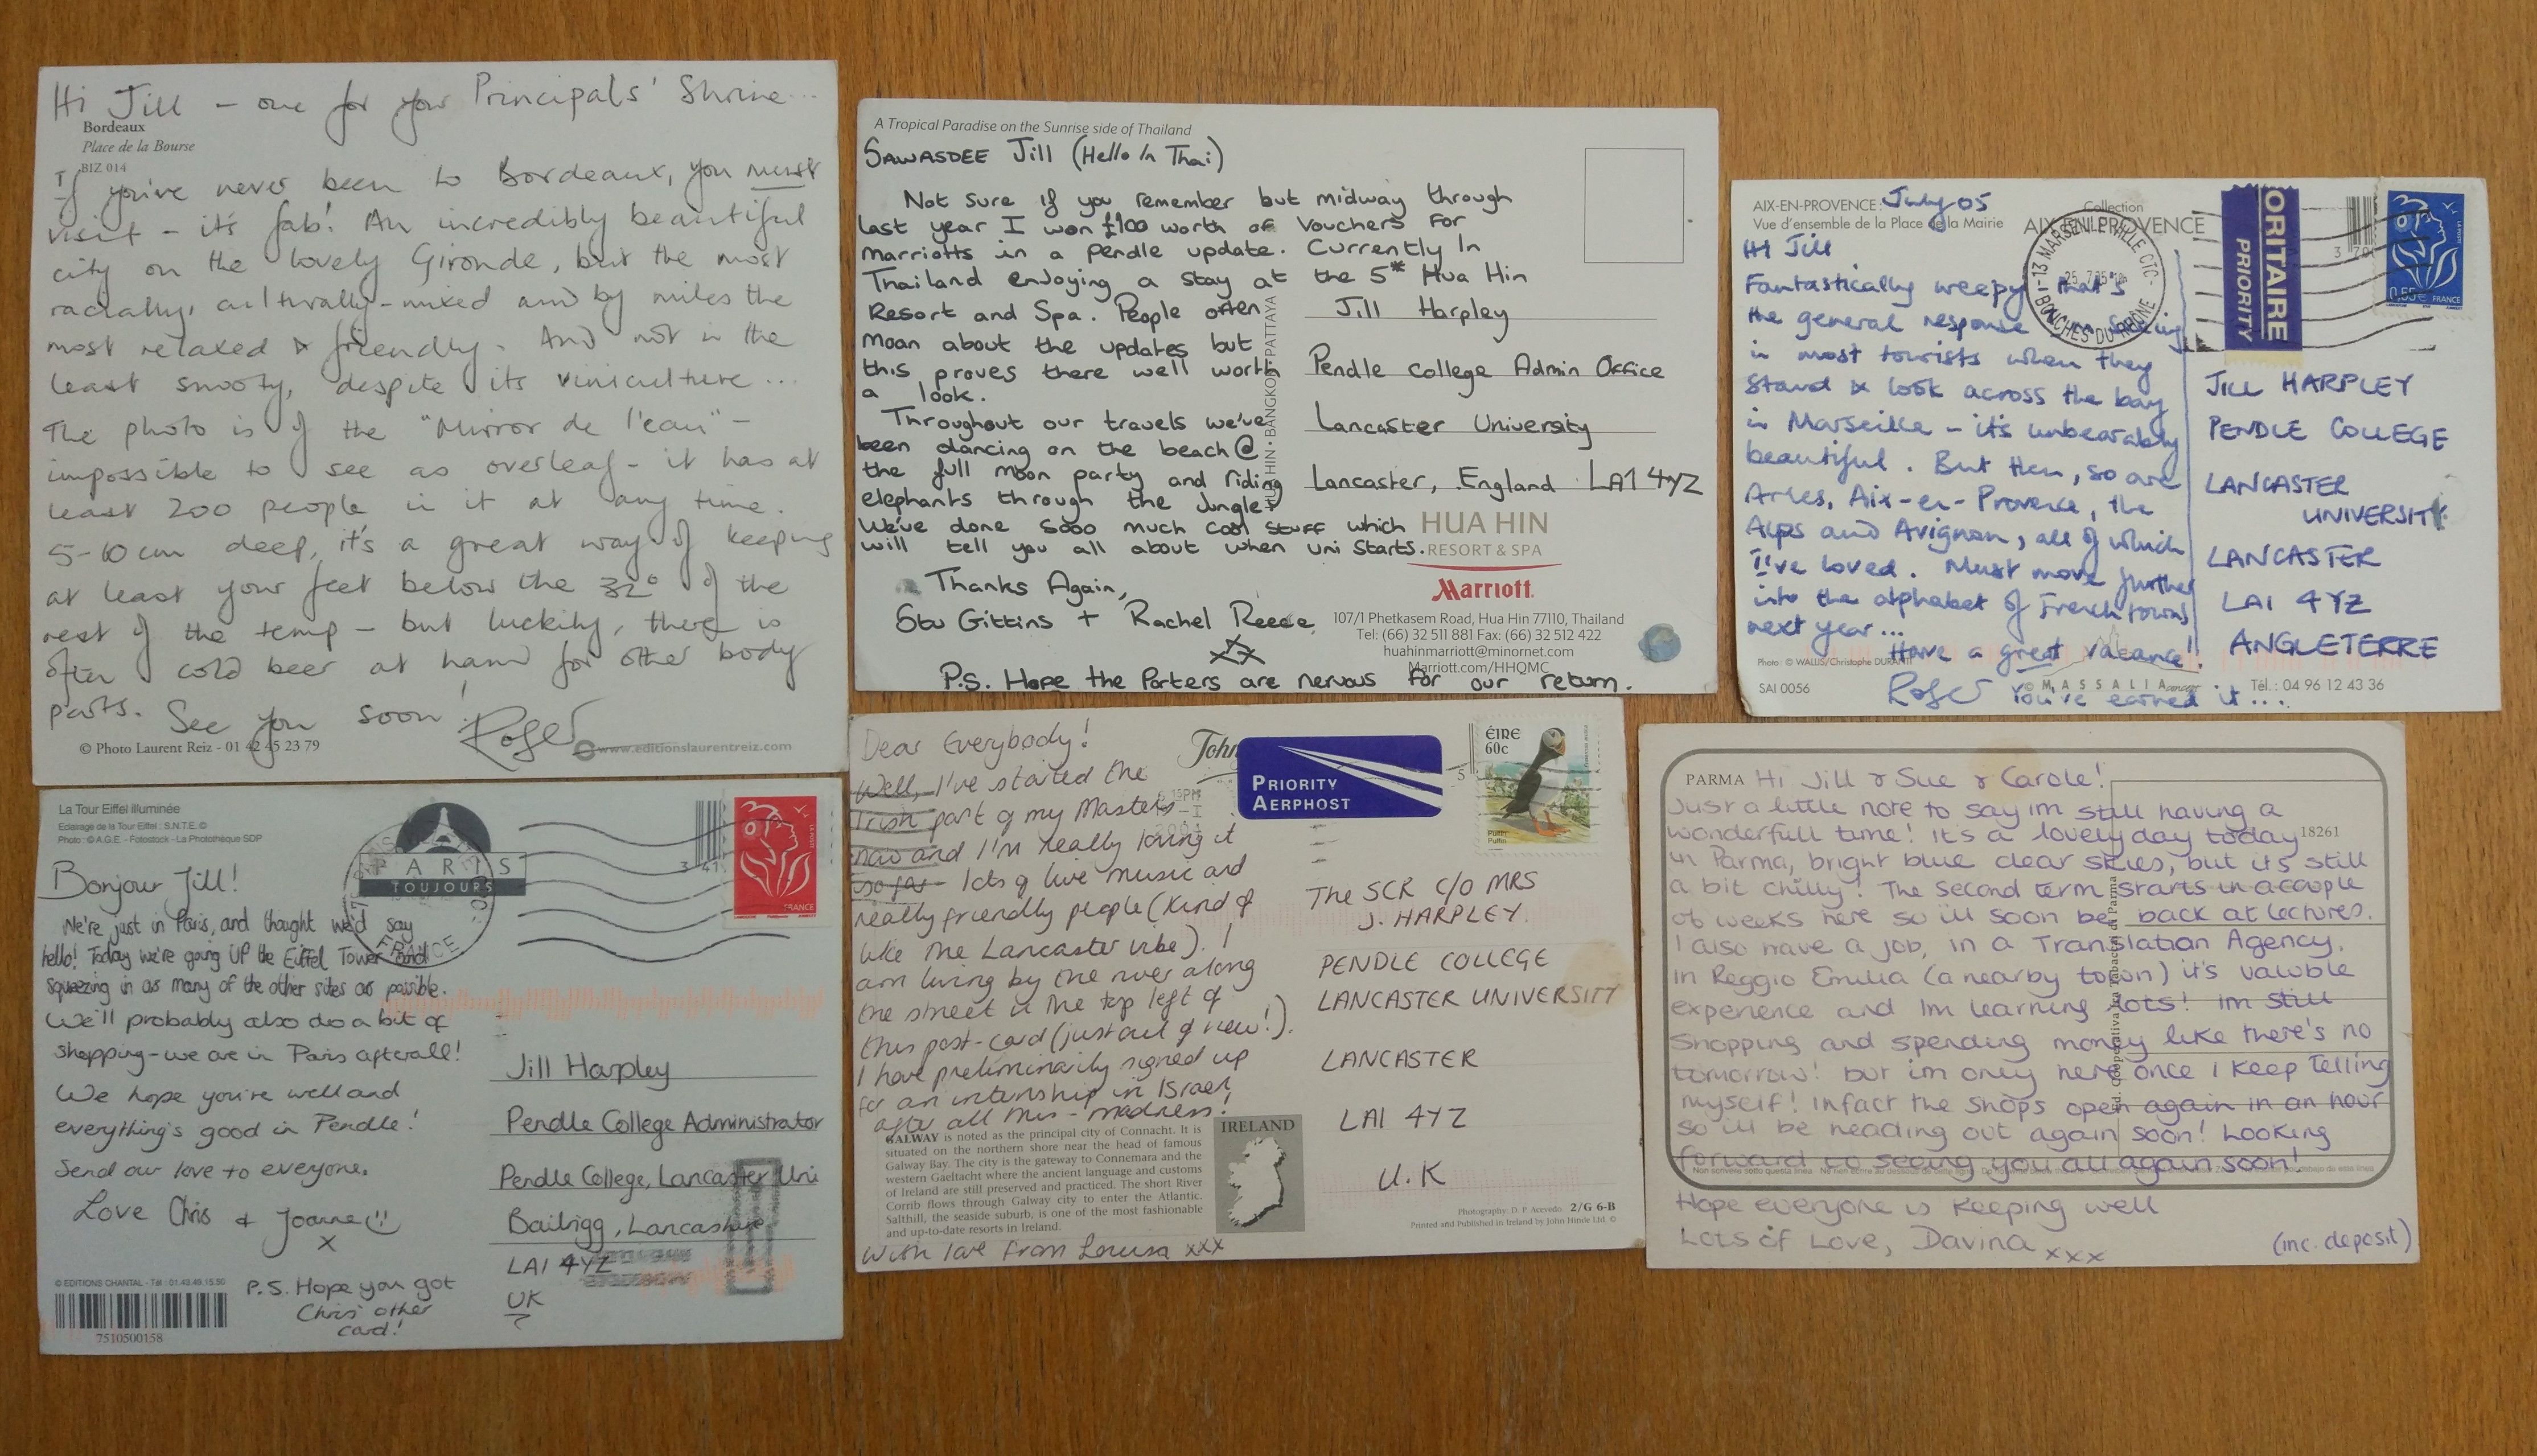 Hi Jill - one for your Principals' Shrine...
Bordeaux
Place de la Bourse
BIZ 014
If you've never been to Bordeaux, you must
visit - it's fab! An incredibly beautiful
city on the lovely Gironde, but the most
racially, culturally-mixed and by miles the
most relaxed & friendly. And not in the
least snooty, despite its viniculture...
The photo is of the "Mirror de l'eau" -
impossible to see as overleaf - it has at
least 200 people in it at any time.
5-10 cm deep, it's a great way of keeping
at least your feet below the 32° of the
rest of the temp - but luckily, there is
often cold beer at hand for other body
parts. See you soon!
Roger
© Photo Laurent Reiz - 01 42 45 23 79
www.editionslaurentreiz.com
A Tropical Paradise on the Sunrise side of Thailand
SAWASDEE Jill (Hello In Thai)
Not sure if you remember but midway through
last year I won £100 worth of Vouchers For
Marriotts in a Pendle update. Currently In
Thailand enjoying a stay at the 5* Hua Hin
Resort and Spa. People often
moan about the updates but
this proves there well worth
a look.
Throughout our travels we've
been dancing on the beach @
the full moon party and riding
elephants through the Jungle.
We've done sooo much cool stuff which
will tell you all about when uni starts.
Thanks Again,
Stu Gittins + Rachel Reece
xx
P.S. Hope the Porters are nervous for our return.
HUA HIN • BANGKOK • PATTAYA
Jill Harpley
Pendle College Admin Office
Lancaster University
Lancaster, England LA1 4YZ
HUA HIN
RESORT & SPA
Marriott
107/1 Phetkasem Road, Hua Hin 77110, Thailand
Tel: (66) 32 511 881 Fax: (66) 32 512 422
huahinmarriott@minornet.com
Marriott.com/HHQMC
AIX-EN-PROVENCE: July 05
Vue d'ensemble de la Place de la Mairie
Collection
AIX-EN-PROVENCE
Hi Jill
Fantastically weepy that's
the general response
in most tourists when they
stand & look across the bay
in Marseille - it's unbearably
beautiful. But then, so are
Arles, Aix-en-Provence, the
Alps and Avignon, all of which
I've loved. Must move further
into the alphabet of French towns
next year...
Have a great vacance!!
Roger You've earned it...
Photo: © WALLIS/Christophe DURANTI
SAI 0056
© MASSALIA concept
Tél.: 04 96 12 43 36
13 MARSEILLE VILLE CTC
BOUCHES DU RHONE
ORITAIRE
PRIORITY
0,55€ FRANCE
JILL HARPLEY
PENDLE COLLEGE
LANCASTER
UNIVERSITY
LANCASTER
LA1 4YZ
ANGLETERRE
La Tour Eiffel illuminée
Eclairage de la Tour Eiffel : S.N.T.E. ©
Photo : © A.G.E. - Fotostock - La Photothèque SDP
PARIS
TOUJOURS
FRANCE
FRANCE
Bonjour Jill!
We're just in Paris, and thought we'd say
hello! Today we're going UP the Eiffel Tower and
squeezing in as many of the other sites as possible.
We'll probably also do a bit of
shopping - we are in Paris afterall!
We hope you're well and
everything's good in Pendle!
Send our love to everyone.
Love Chris & Joanne
x
P.S. Hope you got
Chris' other
card!
© EDITIONS CHANTAL - Tél : 01.43.49.15.50
7510500158
Jill Harpley
Pendle College Administrator
Pendle College, Lancaster Uni
Bailrigg, Lancashire
LA1 4YZ
UK
Dear Everybody!
Well, I've started the
Irish part of my Masters
now and I'm really loving it
so far - lots of live music and
really friendly people (kind of
like the Lancaster vibe). I
am living by the river along
the street in the top left of
this post-card (just out of view!).
I have preliminarily signed up
for an internship in Israel
after all this - madness!
GALWAY is noted as the principal city of Connacht. It is
situated on the northern shore near the head of famous
Galway Bay. The city is the gateway to Connemara and the
western Gaeltacht where the ancient language and customs
of Ireland are still preserved and practiced. The short River
Corrib flows through Galway city to enter the Atlantic.
Salthill, the seaside suburb, is one of the most fashionable
and up-to-date resorts in Ireland.
With love from Louisa xxx
IRELAND
John
PRIORITY
AERPHOST
ÉIRE
60c
Puifín
Puffin
The SCR C/O MRS
J. HARPLEY
PENDLE COLLEGE
LANCASTER UNIVERSITY
LANCASTER
LA1 4YZ
U.K
Photography: D. P. Acevedo 2/G 6-B
Printed and Published in Ireland by John Hinde Ltd. ©
PARMA
18261
Hi Jill & Sue & Carole!
Just a little note to say im still having a
wonderfull time! It's a lovely day today
in Parma, bright blue clear skies, but its still
a bit chilly! The second term starts in a couple
of weeks here so ill soon be back at lectures.
I also have a job, in a Translation Agency,
in Reggio Emilia (a nearby town) it's valuble
experience and Im learning lots! Im still
shopping and spending money like there's no
tomorrow! but im only here once I keep telling
myself! Infact the shops open again in an hour
so ill be heading out again soon! Looking
forward to seeing you all again soon!
Hope everyone is keeping well
Lots of Love, Davina xxx
(inc. deposit)